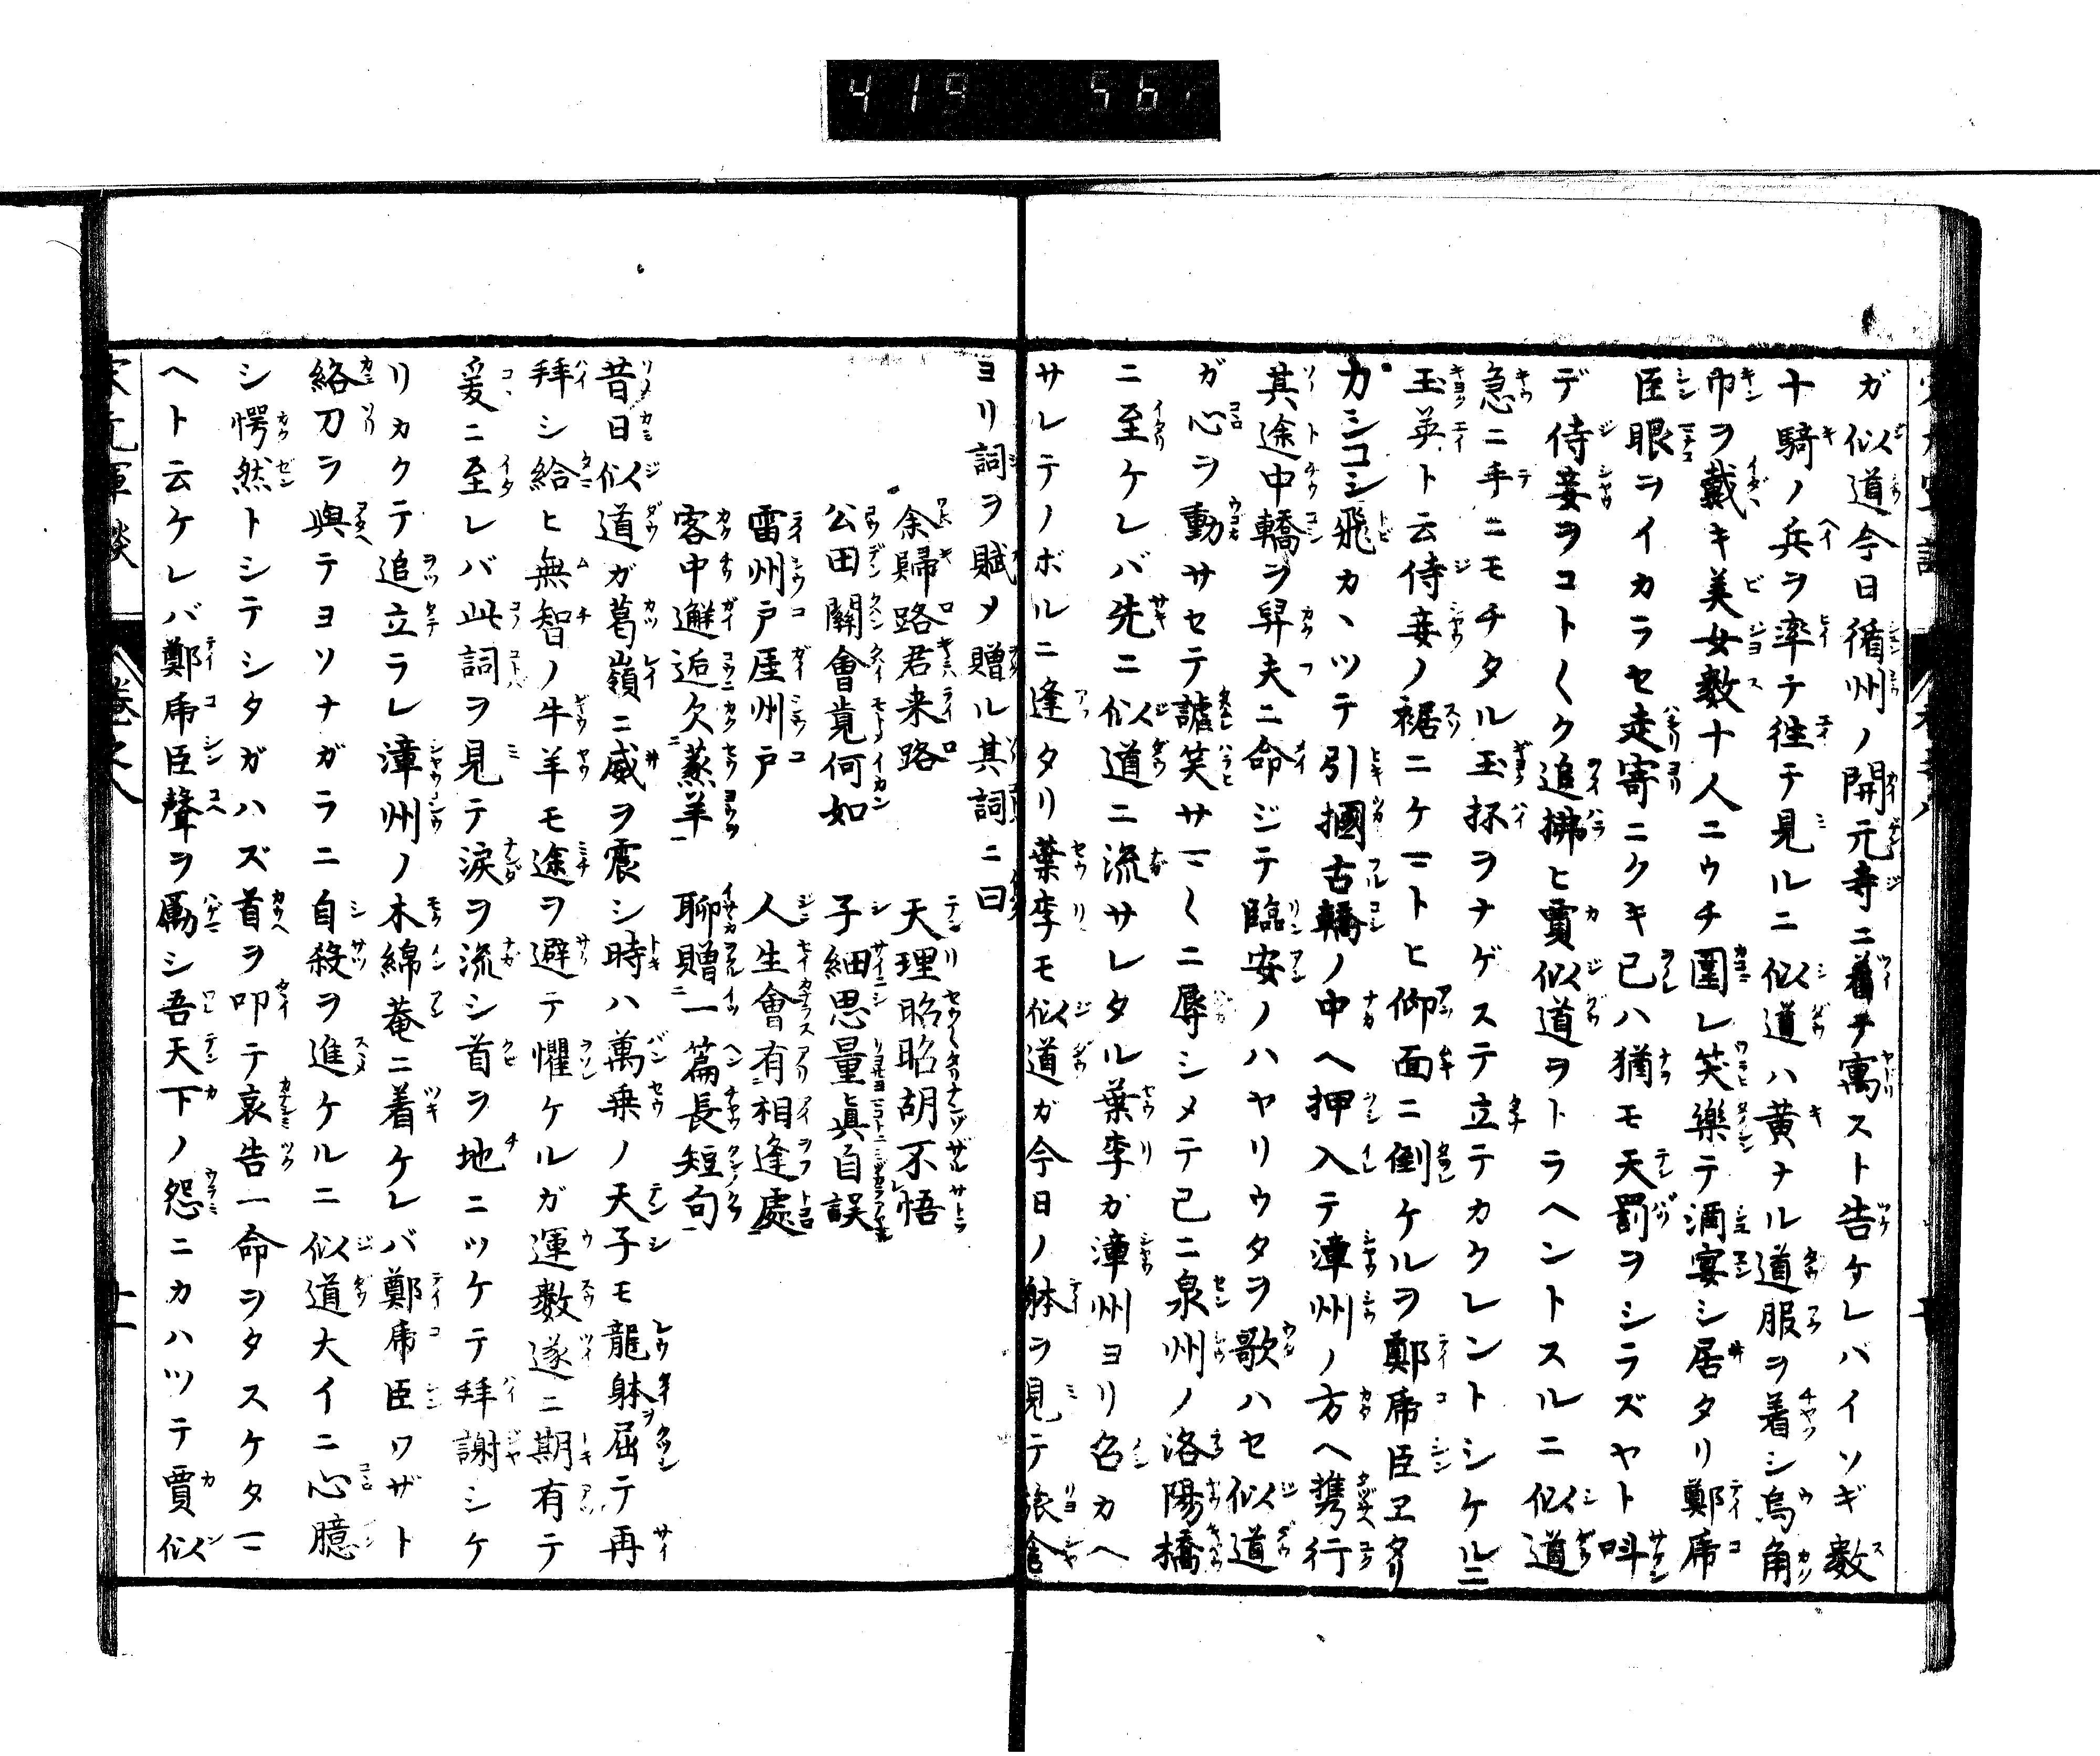 419 56
ガ似道今日循州ノ開元寺ニ着テ寓スト告ケレバイソギ數
十騎ノ兵ヲ率テ往テ見ルニ似道ハ黄ナル道服ヲ着シ烏角
巾ヲ戴キ美女數十人ニウチ圍レ笑樂テ酒宴シ居タリ鄭乕
臣眼ヲイカラセ走寄ニクキ已ハ猶モ天罰ヲシラズヤト呌
デ侍妾ヲコト〱ク追拂ヒ賈似道ヲトラヘントスルニ似道
急ニ手ニモチタル玉杯ヲナゲステ立テカクレントシケルニ
玉英ト云侍妾ノ裾ニケ一トヒ仰面ニ倒ケルヲ鄭乕臣ヱタリ
カシコシ飛カヽツテ引摑古轎ノ中ヘ押入テ漳州ノ方ヘ携行
其途中轎ヲ舁夫ニ命ジテ臨安ノハヤリウタヲ歌ハセ似道
ガ心ヲ動サセテ謔笑サ一〱ニ辱シメテ已ニ泉州ノ洛陽橋
ニ至ケレバ先ニ似道ニ流サレタル葉李カ漳州ヨリ召カヘ
サレテノボルニ逢タリ葉李モ似道ガ今日ノ躰ヲ見テ旅舎
ヨリ詞ヲ賦メ贈ル其詞ニ曰
余歸路君来路 天理昭昭胡不悟
公田關會竟何如 子細思量眞自誤
雷州戸厓州戸 人生會有相逢處
客中邂逅欠蒸羊 聊贈一篇長短句
昔日似道ガ葛嶺ニ威ヲ震シ時ハ萬乗ノ天子モ龍躰ヲ屈テ再
拜シ給ヒ無智ノ牛羊モ途ヲ避テ懼ケルガ運數遂ニ期有テ
爰ニ至レバ此詞ヲ見テ涙ヲ流シ首ヲ地ニツケテ拜謝シケ
リカクテ追立ラレ漳州ノ木綿菴ニ着ケレバ鄭乕臣ワザト
絡刀ヲ與テヨソナガラニ自殺ヲ進ケルニ似道大イニ心臆
シ愕然トシテシタガハズ首ヲ叩テ哀告一命ヲタスケタ一
ヘト云ケレバ鄭乕臣聲ヲ厲シ吾天下ノ怨ニカハツテ賈似
宋元軍談 卷之八 十一